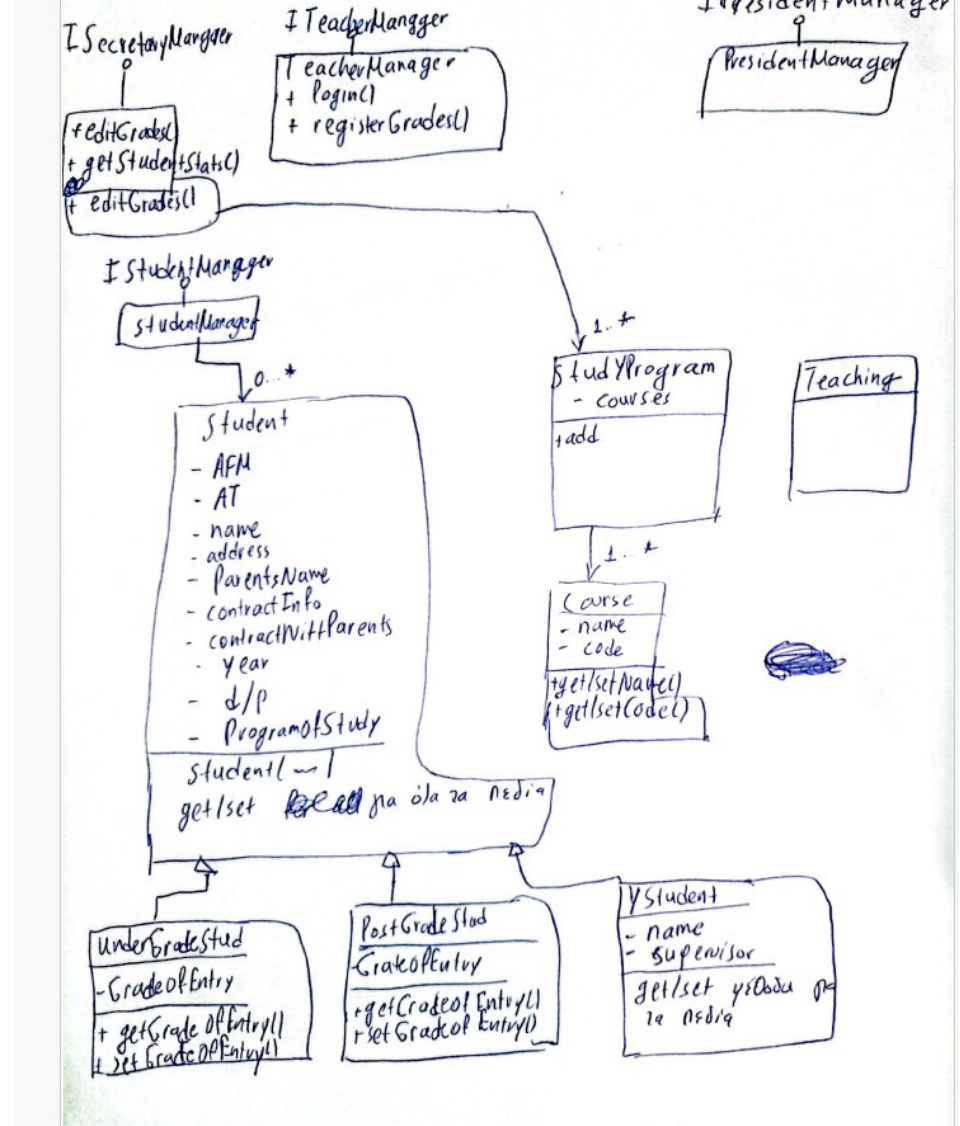 ISecretaryManager
ITeacherMangger
IPresidentManager
PresidentManager
TeacherManager
+ login()
+ registerGrades()
+editGrades()
+ getStudentStats()
+ editGrades()
IStudentMangger
StudentManager
0...*
1..*
Student
- AFM
- AT
- name
- address
- ParentsName
- contractInfo
- contractWithParents
- year
- d/p
- ProgramOfStudy
Student(...)
get/set για όλα τα πεδία
StudyProgram
- courses
+add
Teaching
1..*
Course
- name
- code
+get/setName()
+get/setCode()
UnderGradeStud
-GradeOfEntry
+ getGradeOfEntry()
+ setGradeOfEntry()
PostGradeStud
-GrateOfEntry
+getGradeofEntry()
+setGradeofEntry()
YStudent
- name
- supervisor
get/set μέθοδοι για
τα πεδία